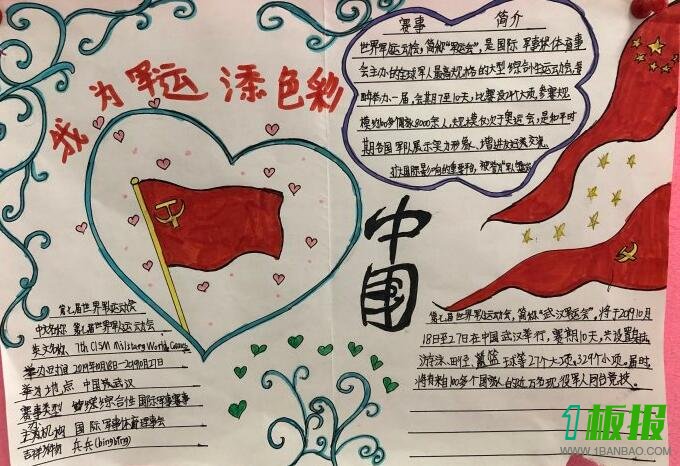 我为军运添色彩
赛事 简介
世界军人运动会，简称"军运会"，是国际军事体育理事
会主办的全球军人最高规格的大型综合性运动会，每
四年举办一届，会期7至10天，比赛设27个大项，参赛规
模约100多个国家8000余人，规模仅次于奥运会，是和平时
期各国军队展示实力形象、增进友好交流、
扩大国际影响的重要平台，被誉为"军人奥运会
中国
第七届世界军人运动会
中文名称 第七届世界军人运动会
英文名称 7th CISM Military World Games
举办时间 2019年10月18日-2019年10月27日
举办地点 中国武汉
赛事类型 综合性国际军事赛事
主办机构 国际军事体育理事会
吉祥物 兵兵(bingbing)
第七届世界军人运动会，简称"武汉军运会"，将于2019年10月
18日至27日在中国武汉举行，赛期10天，共设置射击、
游泳、田径、篮球等27个大项、329个小项。届时
将有来自100多个国家的近万名现役军人同台竞技。
1板报
WWW.1BANBAO.COM